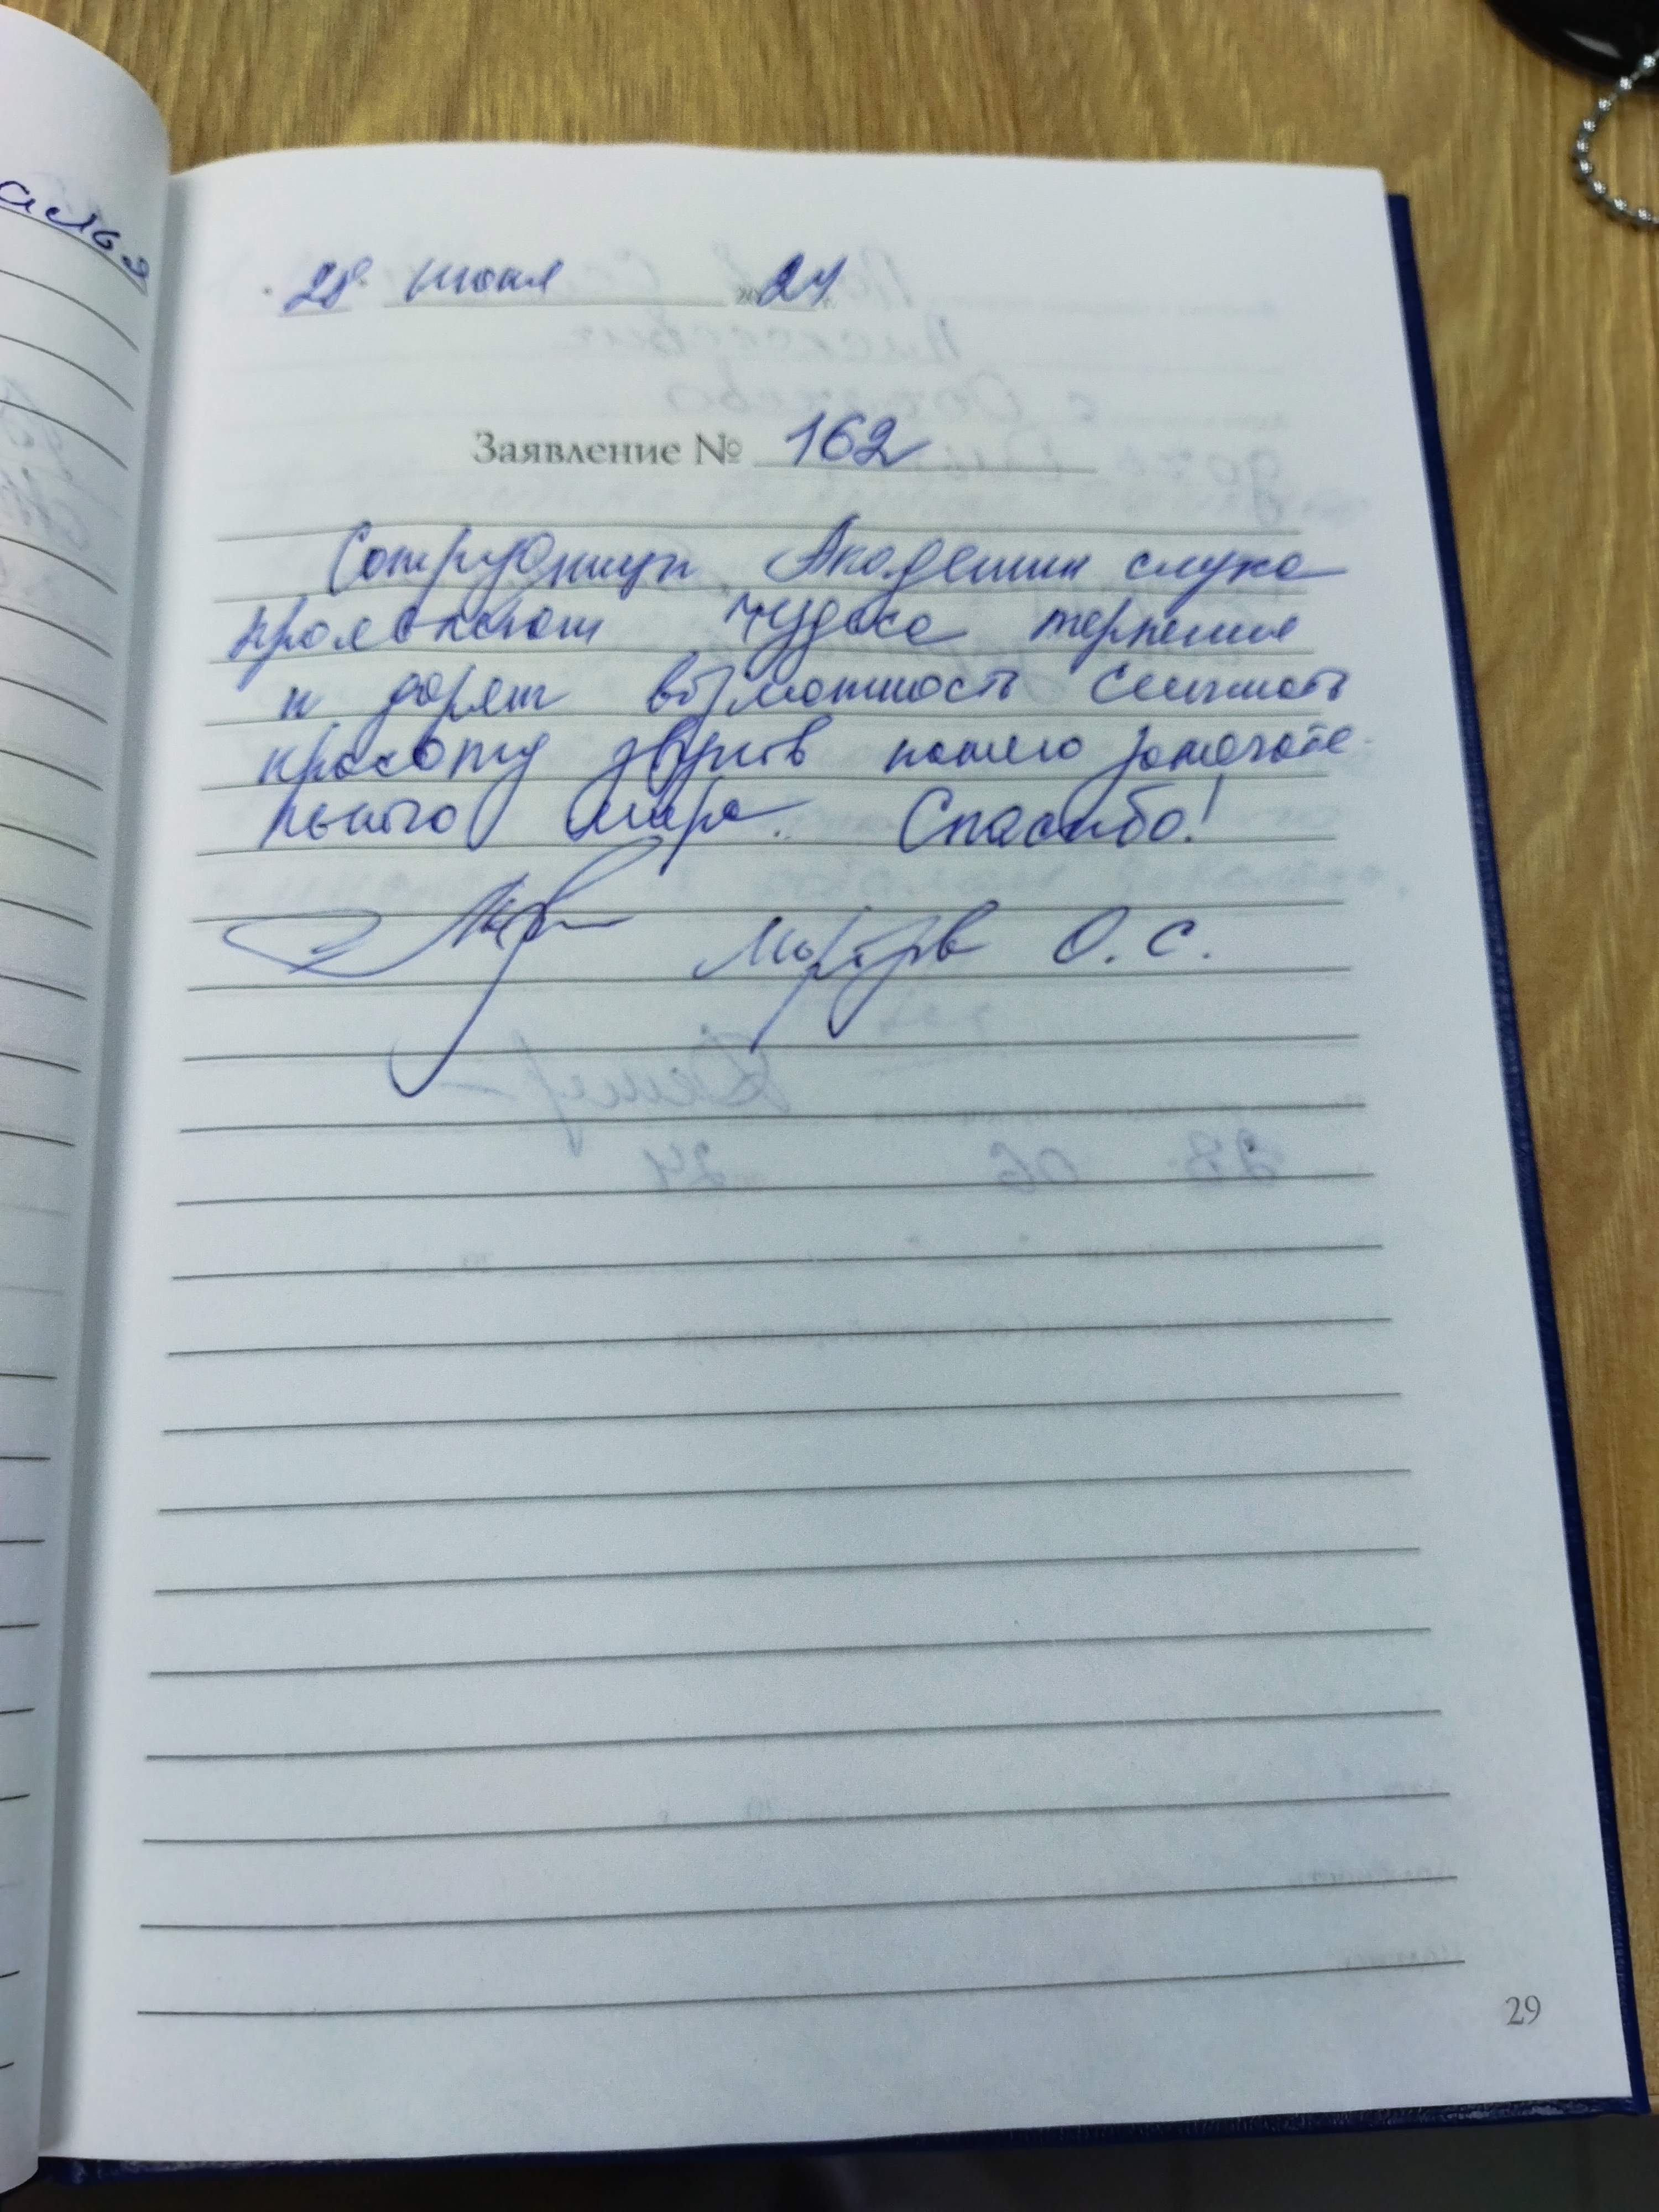 28 июня 24
Заявление № 162
Сотрудники Академии слуха
проявляют чудеса терпения
и дарят возможность слышать
красоту звуков нашего замечате-
льного мира. Спасибо!
О. С.
29